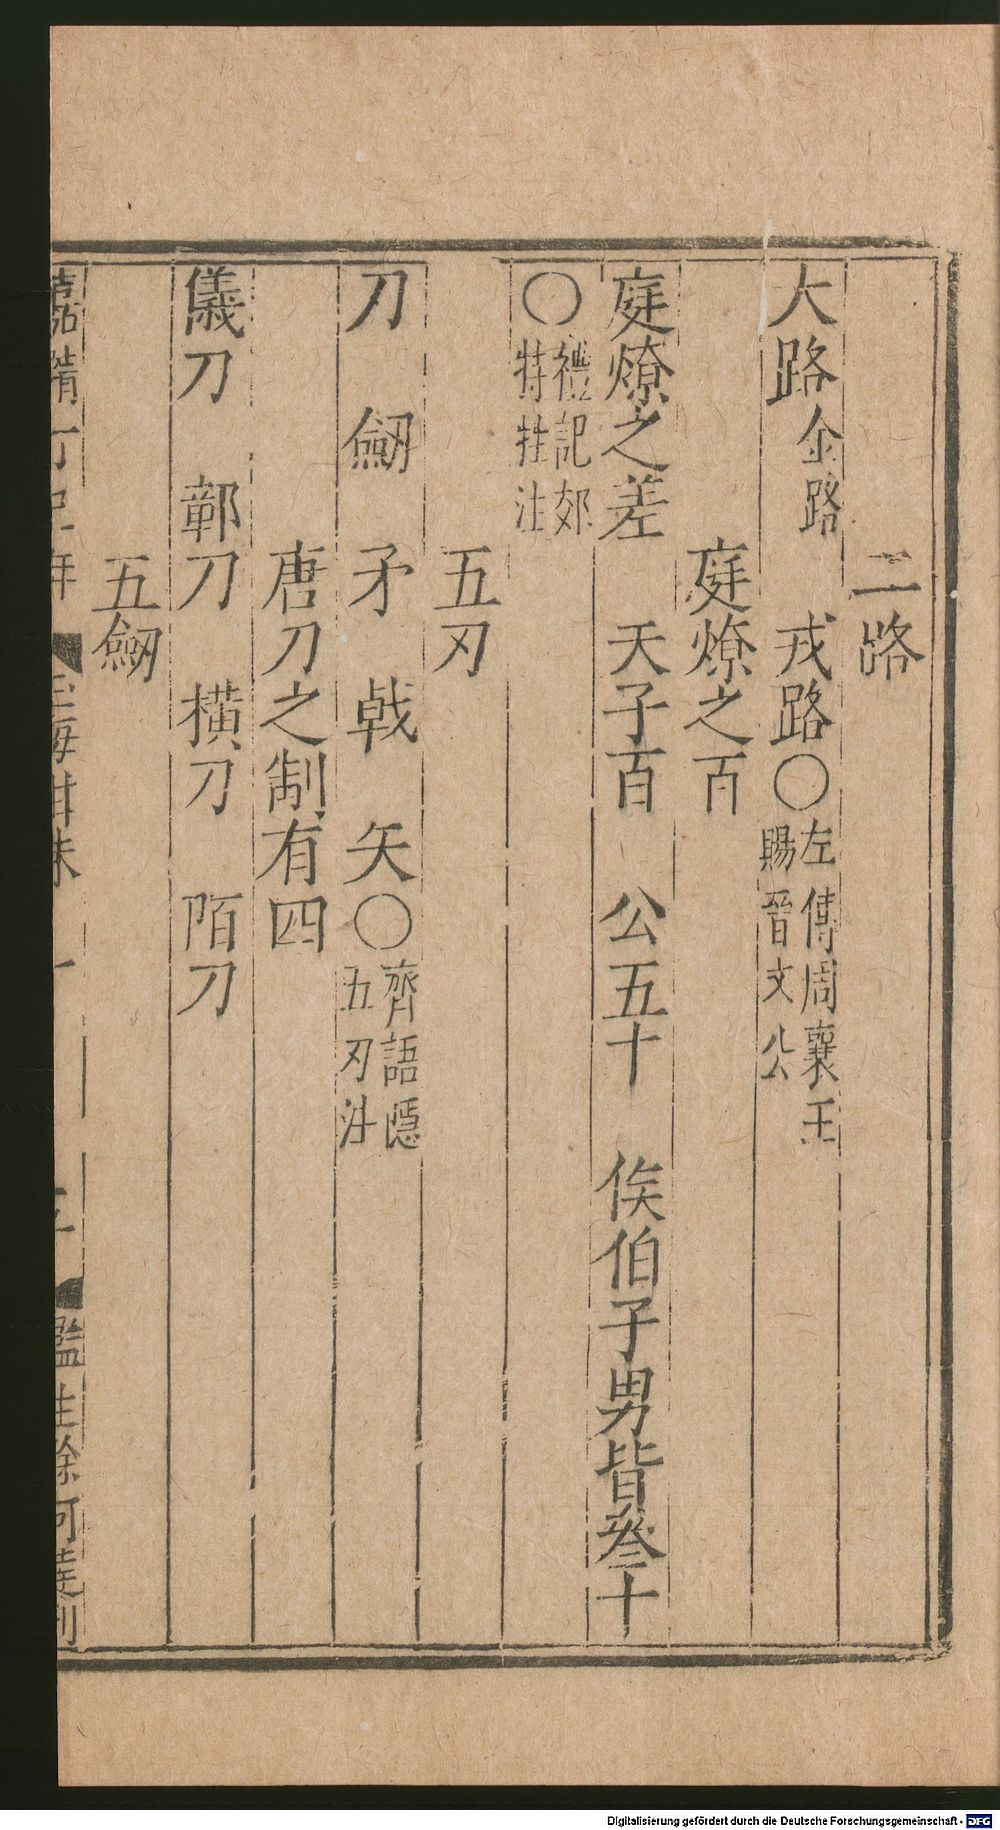 二路
大路金路　戎路〇左傳周襄王賜晉文公
庭燎之百
庭燎之差　天子百　公五十　侯伯子男皆叄十
〇禮記郊特牲注
五刃
刀　劒　矛　戟　矢〇齊語隱五刃注
唐刀之制有四
儀刀　鄣刀　橫刀　陌刀
五劒
Digitalisierung gefördert durch die Deutsche Forschungsgemeinschaft - DFG